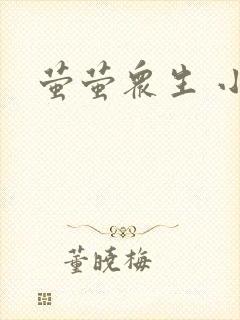 萤萤众生 小
董晓梅